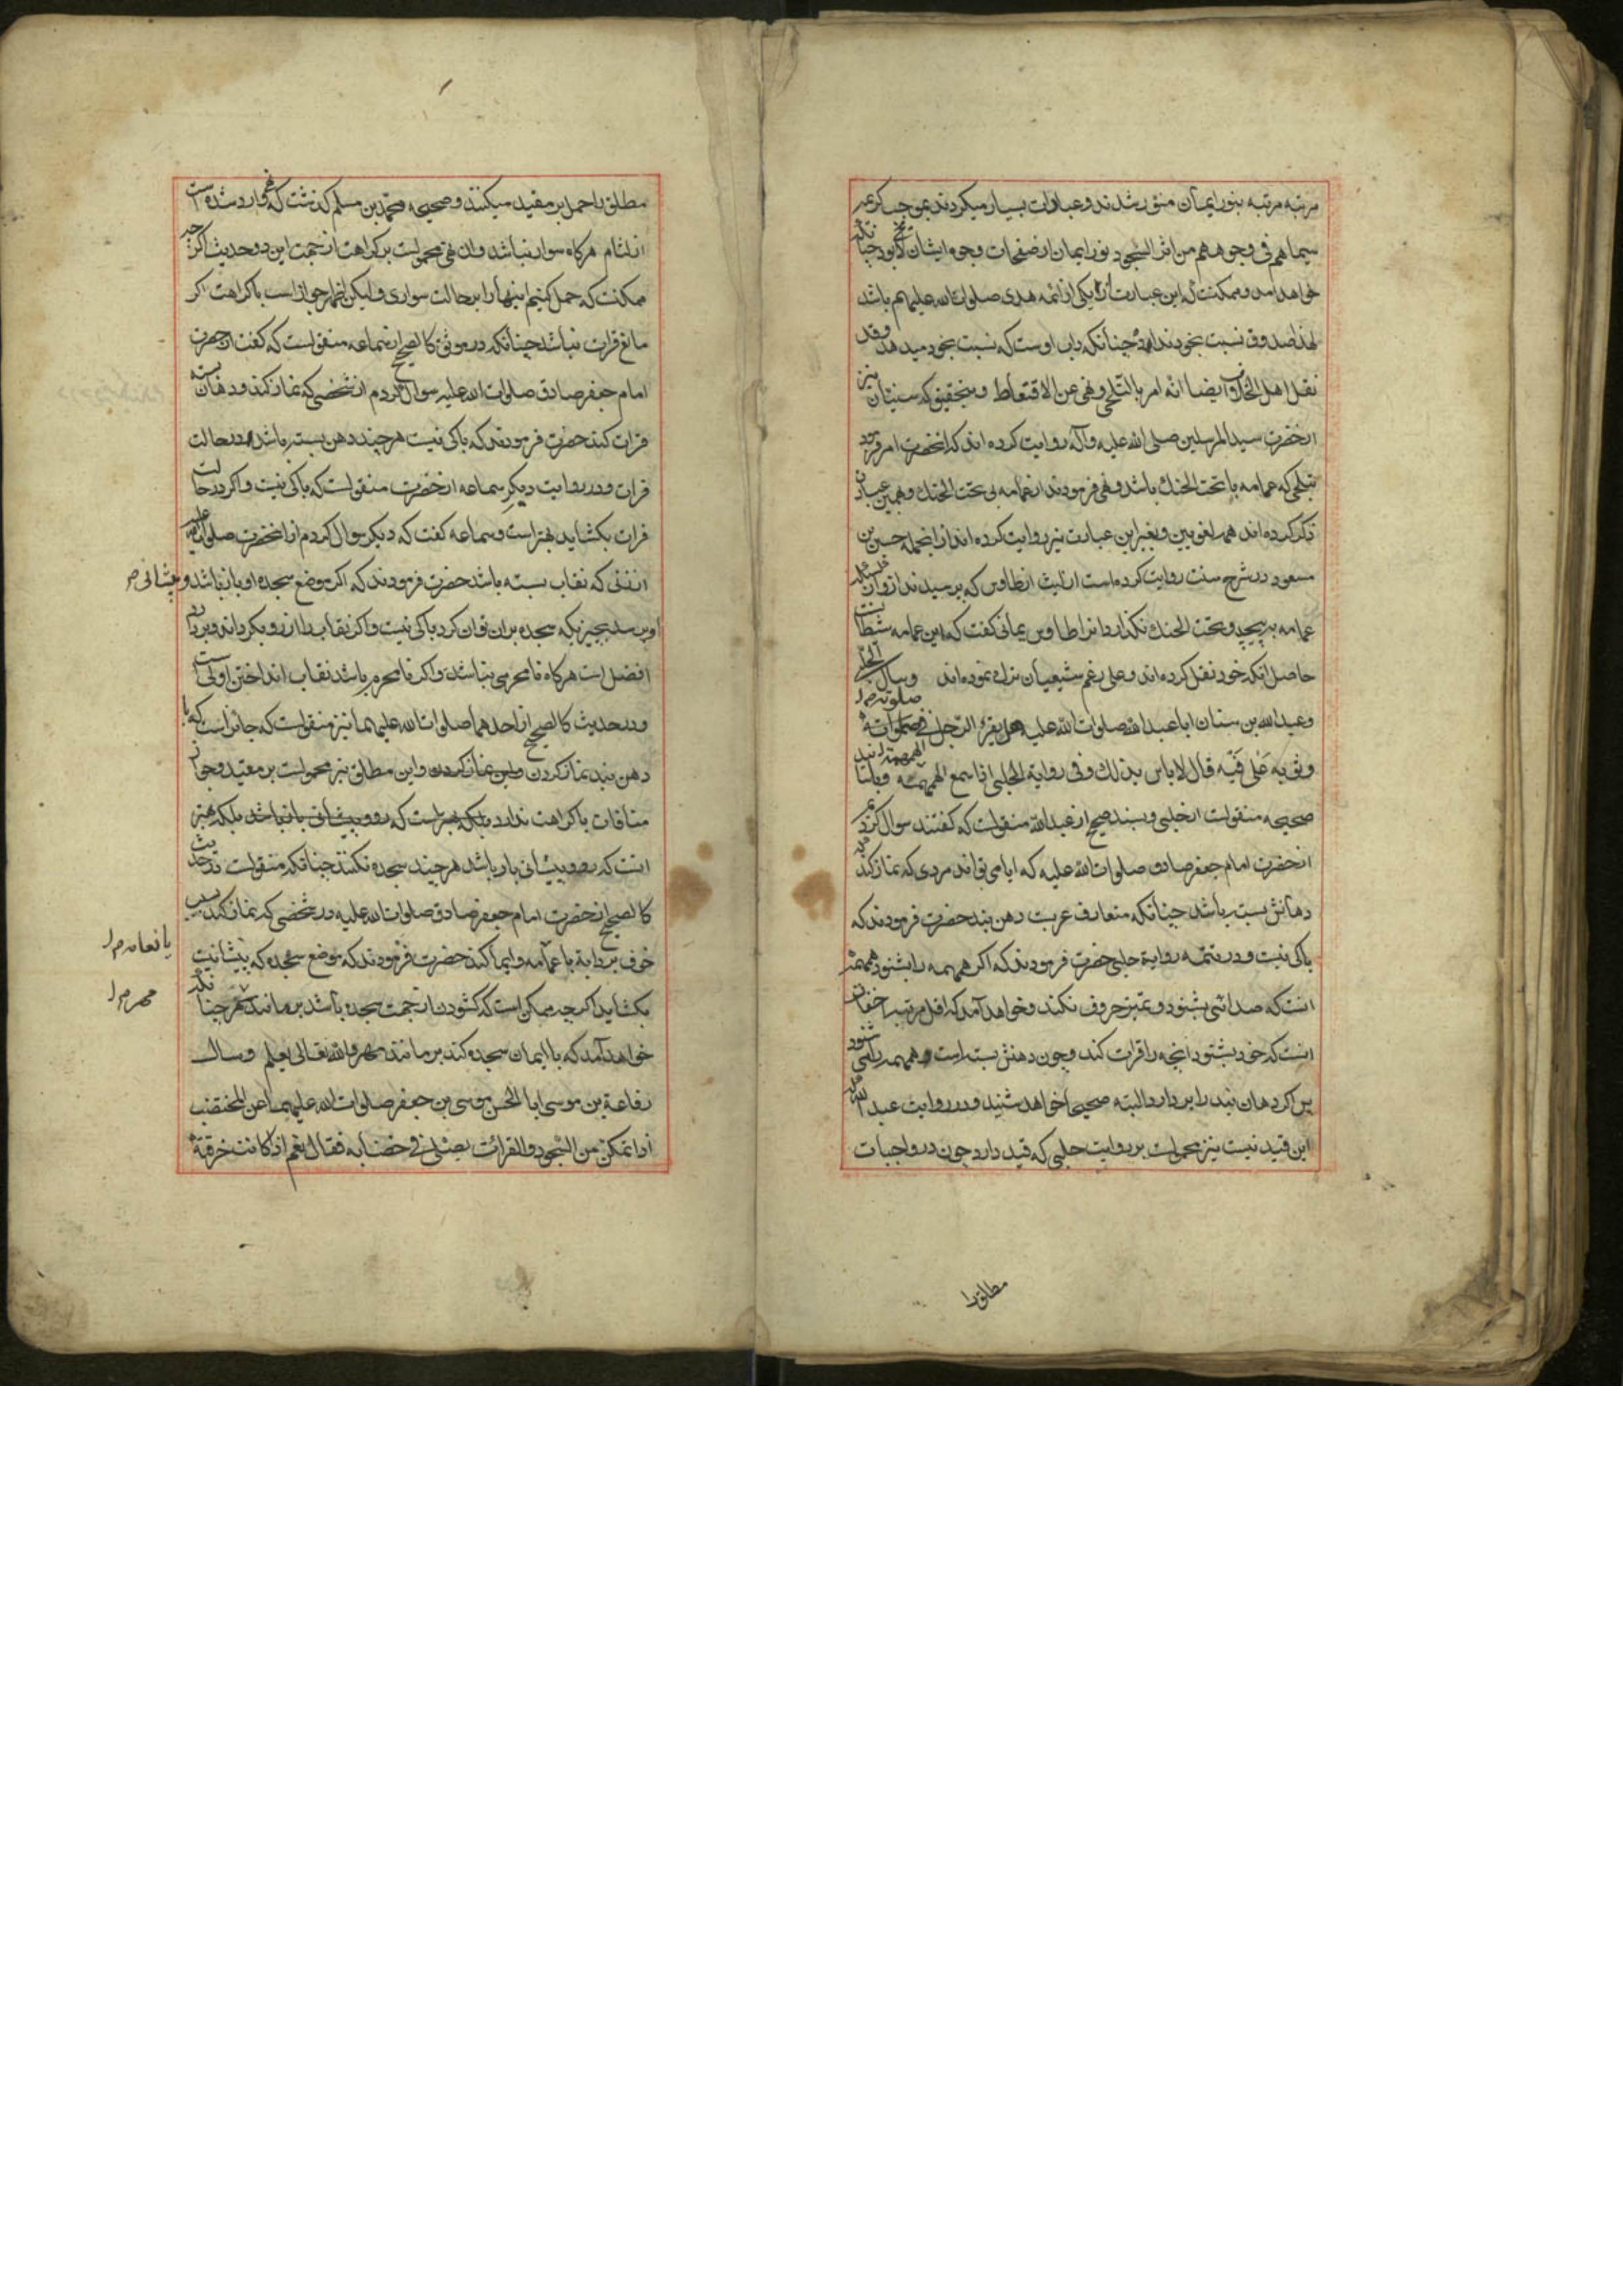 مرتبه مرتبه بنور ایمان منور شدند و عبادات بسیار میکردند بموجب کریمه
سیماهم فی وجوههم من اثر السجود نور ایمان از صفحات وجوه ایشان لایح بود چنانکه
خواهد امد و ممکنست که این عبارت از یکی از ائمه هدی صلوات الله علیهم باشد
لهذا صدوق نسبت بخود نداده چنانکه داب اوست که نسبت بخود میدهد وقد
نقل اهل الخلاف ایضا انه امر بالتلحی و نهی عن الاقتعاط و بتحقیق که سنیان نیز
از حضرت سید المرسلین صلی الله علیه وآله روایت کرده اند که انحضرت امر فرمود
بتلحی که عمامه با تحت الحنک باشد و نهی فرمودند از عمامه بی تحت الحنک و همین عبارت
ذکر کرده اند همه لغویین و بغیر این عبارت نیز روایت کرده اند از انجمله حسین بن
مسعود در شرح سنت روایت کرده است از لیث از طاوس که پرسیدند از و از
عمامه بپیچد و تحت الحنک نگذارد انرا طاوس یمانی گفت که این عمامه شیطانست
حاصل انکه خود نقل کرده اند و علی رغم شیعیان ترک نموده اند وسال الحلبی
وعبد الله بن سنان ابا عبد الله صلوات الله علیه هل یقرء الرجل فی صلوته
وثوبه علی فیه قال لاباس بذلک و فی روایة الحلبی اذا سمع الهمهمة
صحیحه منقولست از حلبی و بسند صحیح از عبدالله منقولست که گفتند سوال کردیم
از حضرت امام جعفر صادق صلوات الله علیه که ایا می تواند مردی که نماز کند
دهانش بسته باشد چنانکه متعارف عربست دهن بند حضرت فرمودند که
باکی نیست و در تتمه روایة حلبی حضرت فرمودند که اگر همهمه را بشنود همهمه
انست که صدائی بشنود و تمیز حروف نکند و خواهد آمد که اقل مرتبه اخفات
اینست که خود بشنود انچه را قرات کند و چون دهنش بسته است همهمه را می شنود
پس اگر دهان بند را بردارد البته صحیح خواهد شنید و در روایت عبد الله
این قید نیست نیز محمولست بر روایت حلبی که قید دارد چون در واجبات
مطلق را
مطلق را حمل بر مقید میکنند و صحیحه محمد بن مسلم گذشت که نهی وارد شده است
از لثام هرگاه سوار نباشد و ان نهی محمولست بر کراهت از جهت این دو حدیث اگرچه
ممکنست که حمل کنیم اینها را بر حالت سواری و لیکن اظهر جواز است با کراهت اگر
مانع قرات نباشد چنانکه در موثق کالصحیح از سماعه منقولست که گفت از حضرت
امام جعفر صادق صلوات الله علیه سوال کردم از شخصی که نماز کند و دهان بسته
قرات کند حضرت فرمودند که باکی نیست هر چند دهن بسته باشد در حالت
قرات و در روایت دیگر سماعه از حضرت منقولست که باکی نیست و اگر در حالت
قرات بکشاید بهتر است و سماعه گفت که دیگر سوال کردم از انحضرت صلوات الله علیه
از زنی که نقاب بسته باشد حضرت فرمودند که اگر موضع سجده او باز باشد و پیشانی
او برسد بچیزیکه سجده بران توان کرد باکی نیست و اگر نقاب را از رو بگرداند و بردارد
افضل است هرگاه نامحرمی نباشد و اگر نامحرم باشد نقاب انداختن اولی است
و در حدیث کالصحیح از احدهما صلوات الله علیهما نیز منقولست که جایز است که با
دهن بند نماز کردن و این مطلق نیز محمولست بر مقید و جواز
منافات با کراهت ندارد بلکه بهتر
انست که رو و پیشانی باز باشد هر چند سجده نکند چنانکه منقولست در حدیث
کالصحیح از حضرت امام جعفر صادق صلوات الله علیه در شخصی که نماز کند بسبب
خوف بر دابة با عمامه و ایما کند حضرت فرمودند که موضع سجده که پیشانیست
بکشاید اگرچه ممکن است که گشودن از جهت سجده باشد بر مانند مهر چنانکه
خواهد آمد که با ایمان سجده کند بر مانند مهر والله تعالی یعلم وسال
رفاعة بن موسی ابا الحسن موسی بن جعفر صلوات الله علیهما عن المختضب
اذا تمکن من السجود والقرائت یصلی فی خضابه فقال نعم اذا کانت خرقته